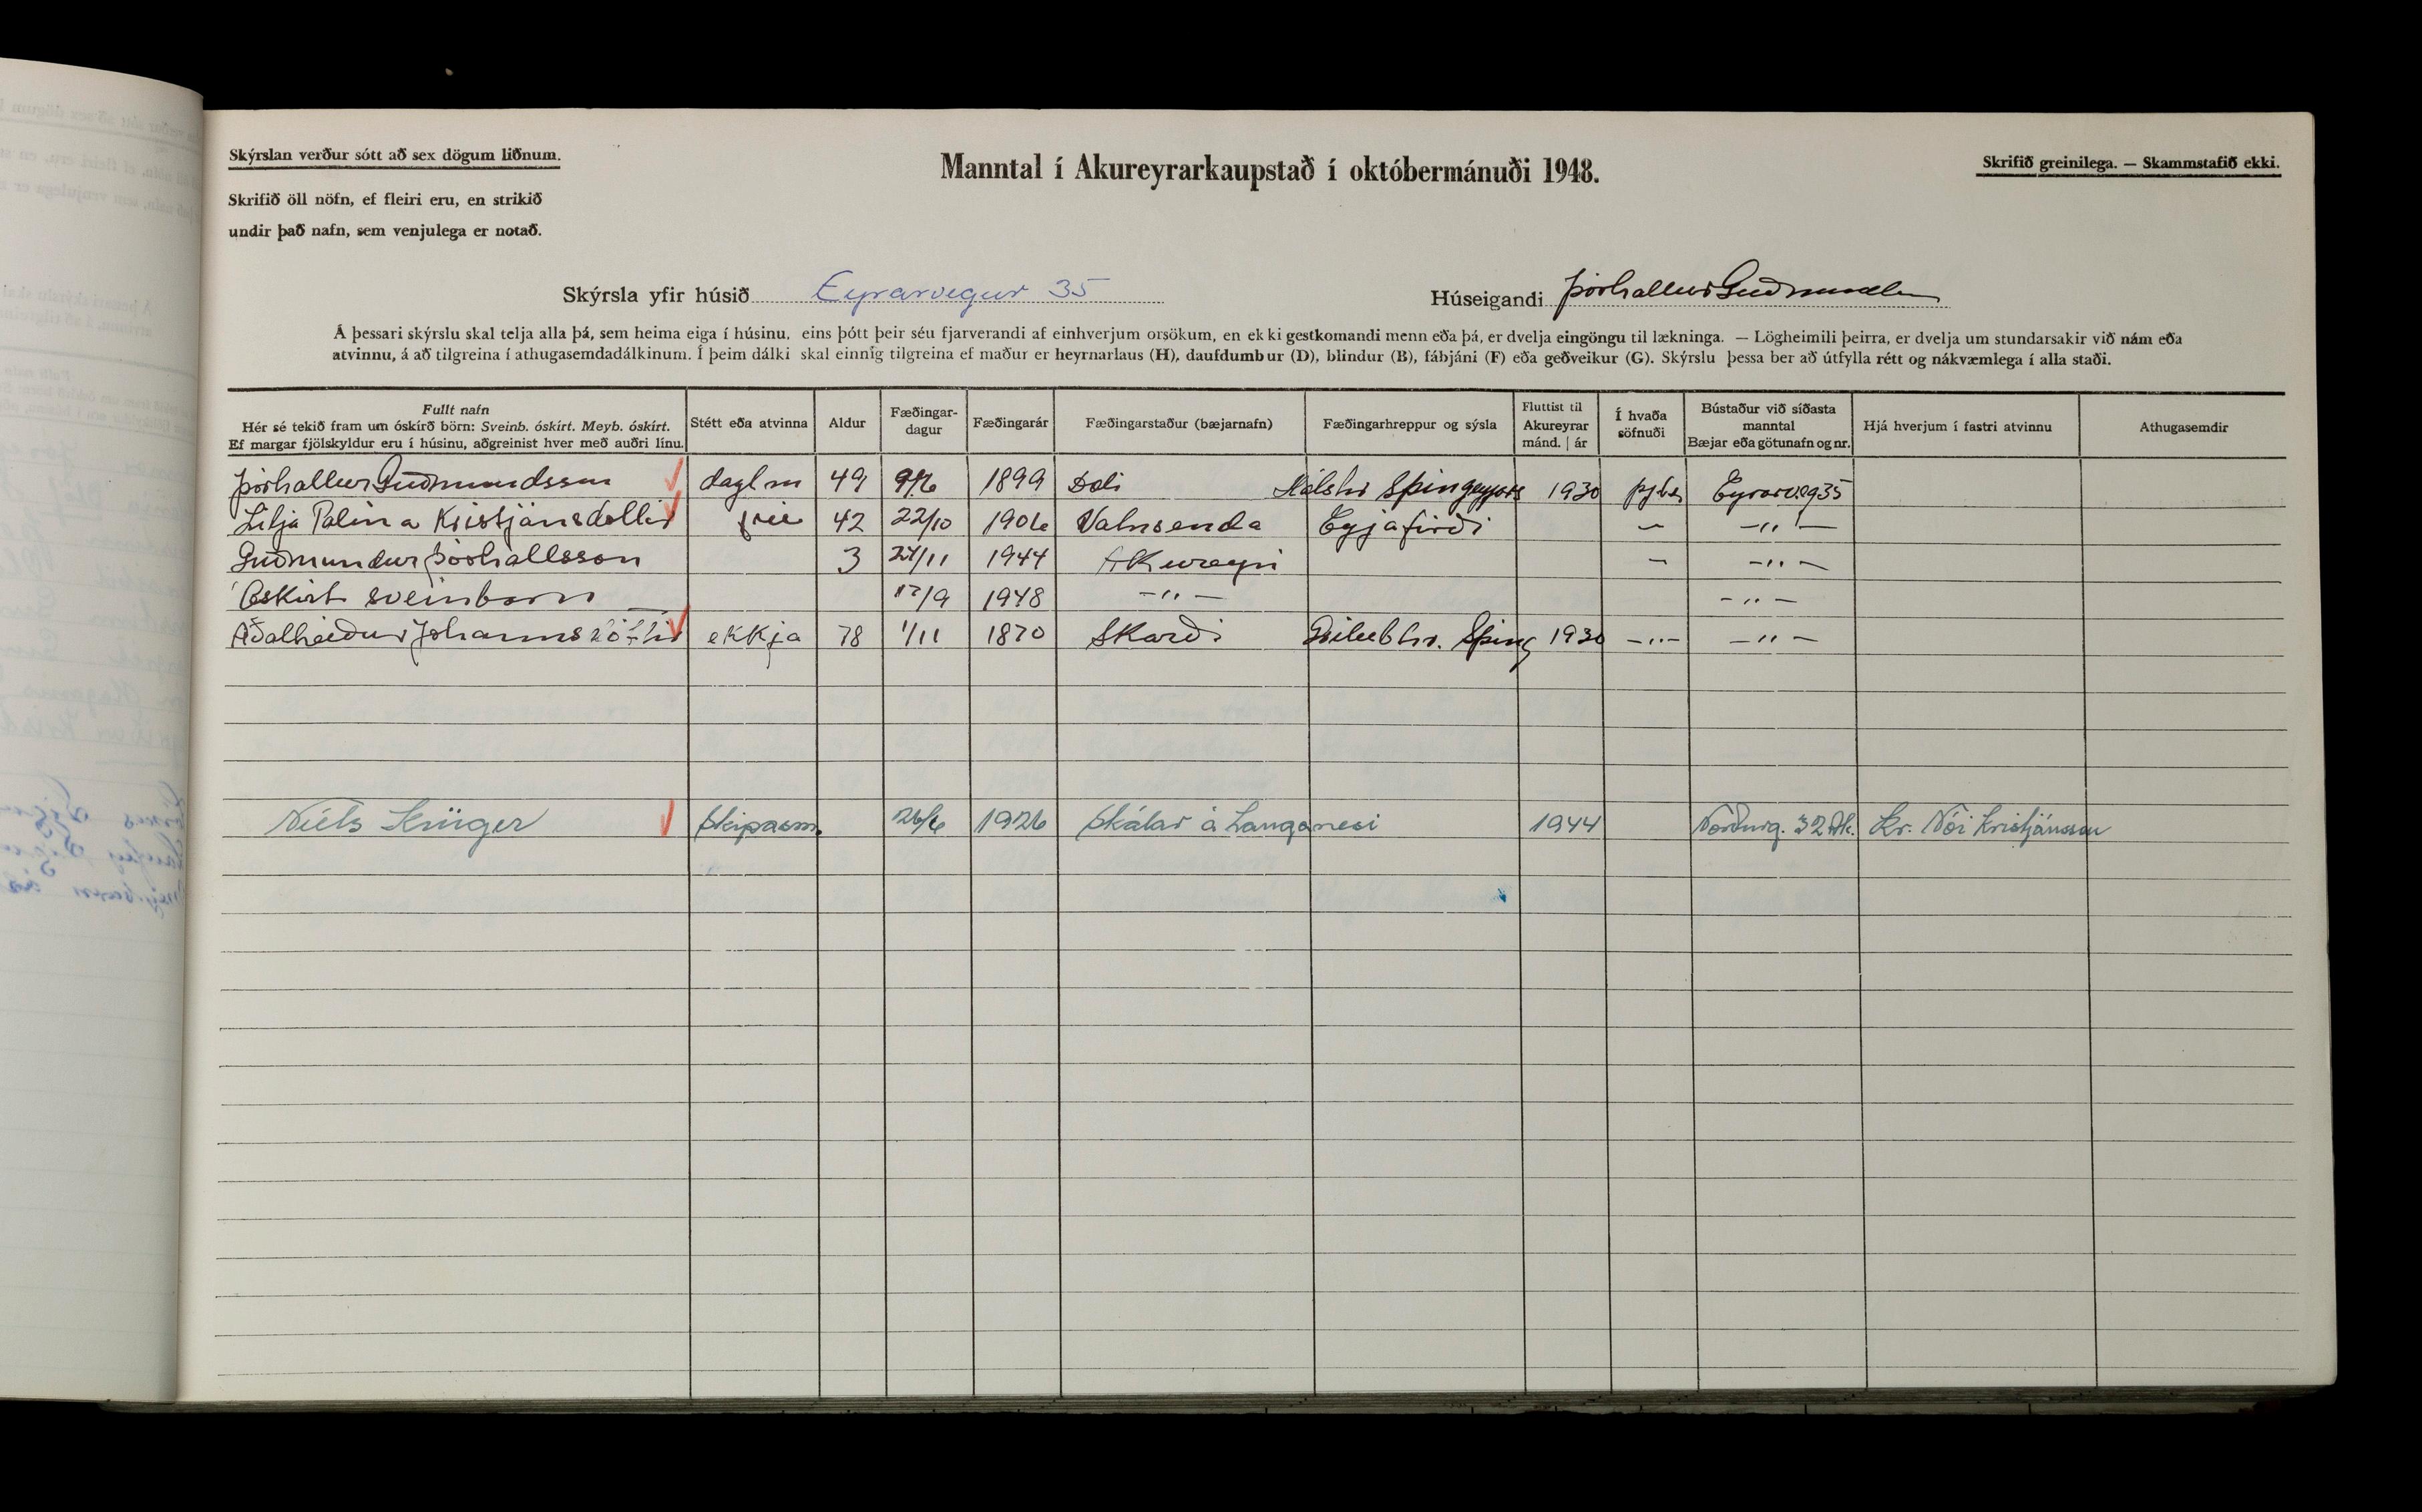 Skýrslan verður sótt að sex dögum liðnum.
Skrifið öll nöfn, ef fleiri eru, en strikið
undir það nafn, sem venjulega er notað.
Manntal í Akureyrarkaupstað í októbermánuði 1948.
Skrifið greinilega. — Skammstafið ekki.
Skýrsla yfir húsið Eyrarvegur 35
Húseigandi Þórhallur
Á þessari skýrslu skal telja alla þá, sem heima eiga í húsinu, eins þótt þeir séu fjarverandi af einhverjum orsökum, en ekki gestkomandi menn eða þá, er dvelja eingöngu til lækninga. — Lögheimili þeirra, er dvelja um stundarsakir við nám eða
atvinnu, á að tilgreina í athugasemdadálkinum. Í þeim dálki skal einnig tilgreina ef maður er heyrnarlaus (H), daufdumbur (D), blindur (B), fábjáni (F) eða geðveikur (G). Skýrslu þessa ber að útfylla rétt og nákvæmlega í alla staði.
Fullt nafn
Hér sé tekið fram um óskírð börn: Sveinb. óskírt. Meyb. óskírt.
Ef margar fjölskyldur eru í húsinu, aðgreinist hver með auðri línu.
Stétt eða atvinna
Aldur
Fæðingar-
dagur
Fæðingarár
Fæðingarstaður (bæjarnafn)
Fæðingarhreppur og sýsla
Fluttist til
Akureyrar
mánd. | ár
Í hvaða
söfnuði
Bústaður við síðasta
manntal
Bæjar eða götunafn og nr.
Hjá hverjum í fastri atvinnu
Athugasemdir
Þórhallur Guðmundsson daglm 49 1899 Dali Hálshr 1930 Eyrarveg 35
Lilja Palina Kristjánsdottir frú 42 22/10 1906 Vatnsenda Eyjafirði — —„—
Guðmundur Þórhallsson 3 24/11 1944 Akureyri — —„—
Óskirt sveinbarn 17/9 1948 —„— —„—
Aðalheiður Jóhannsdóttir ekkja 78 1/11 1870 Skarði Sþing 1930 —„— —„—
Niels Krüger Skipasm. 26/6 1926 Skálar á Langanesi 1944 Norðurg. 32 Ak. Kr. Nói Kristjánsson